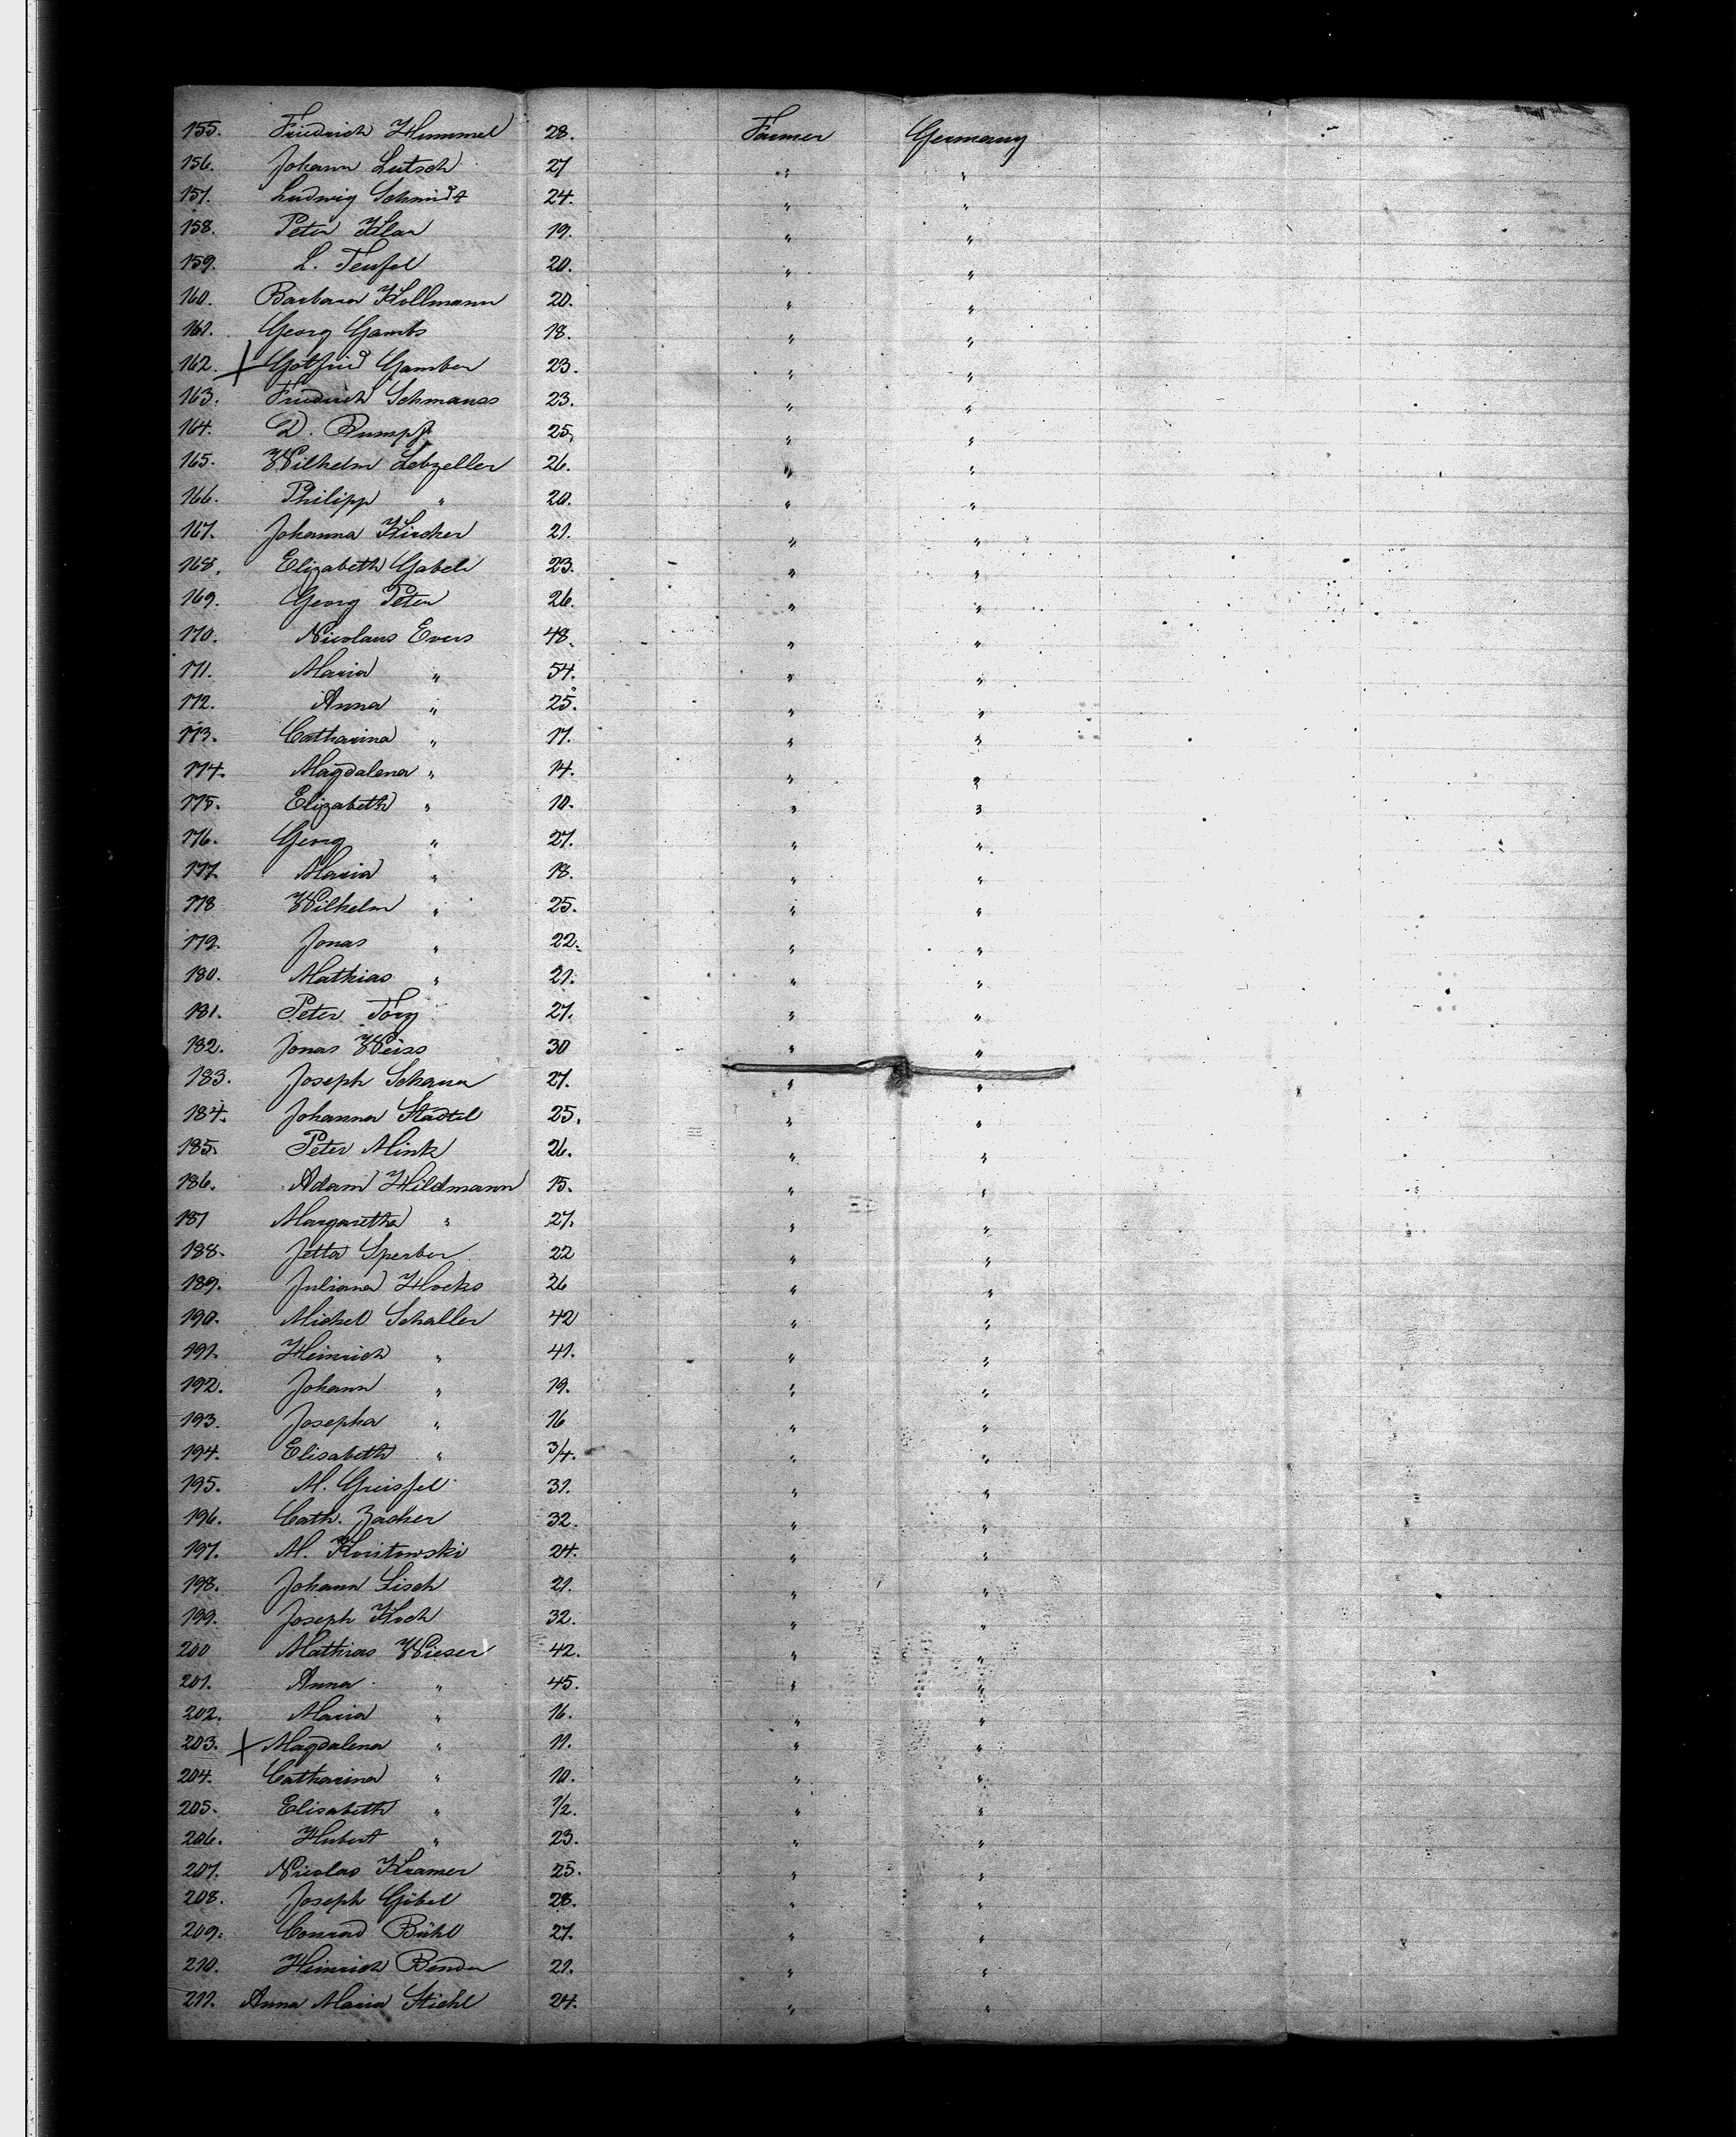 155. Friedrich Hummel 28. Farmer Germany
156. Johann Lutsch 27 " "
157. Ludwig Schmidt 24. " "
158. Peter Klar 19. " "
159. L. Teufel 20. " "
160. Barbara Kollmann 20. " "
161. Georg Gambs 18. " "
162. Gotfried Gamber 23. " "
163. Friedrich Schmauss 23. " "
164. D. Rumpf 25. " "
165. Wilhelm Lebzeller 26. " "
166. Philipp " 20. " "
167. Johanna Kircher 21. " "
168. Elizabeth Gabel 23. " "
169. Georg Peter 26. " "
170. Nicolaus Evers 48. " "
171. Maria " 54. " "
172. Anna " 25. " "
173. Catharina " 17. " "
174. Magdalena " 14. " "
175. Elizabeth " 10. " "
176. Georg " 27. " "
177. Maria " 18. " "
178 Wilhelm " 25. " "
179. Jonas " 22. " "
180. Mathias " 21. " "
181. Peter 27. " "
182. Jonas Weiss 30 " "
183. Joseph Schauer 27. " "
184. Johanna Städtel 25. " "
185. Peter Mink 26. " "
186. Adam Hildmann 15. " "
187 Margaretha " 27. " "
188. Jetta Sperber 22 " "
189. Juliana Hocks 36 " "
190. Michel Schaller 42 " "
191. Heinrich " 41. " "
192. Johann " 19. " "
193. Josepha " 16 " "
194. Elisabeth " 3/4. " "
195. M. 31. " "
196. Cath. Zacher 32. " "
197. M. 24. " "
198. Johann Lisch 21. " "
199. Joseph Koch 32. " "
200 Mathias Wieser 42. " "
201. Anna " 45. " "
202. Maria " 16. " "
203. Magdalena " 11. " "
204. Catharina " 10. " "
205. Elisabeth " 1/2. " "
206. Hubert " 23. " "
207. Nicolas Kramer 25. " "
208. Joseph Göbel 28. " "
209. Conrad Bühl 27. " "
210. Heinrich Bender 21. " "
211. Anna Maria Stiehl 24. " "